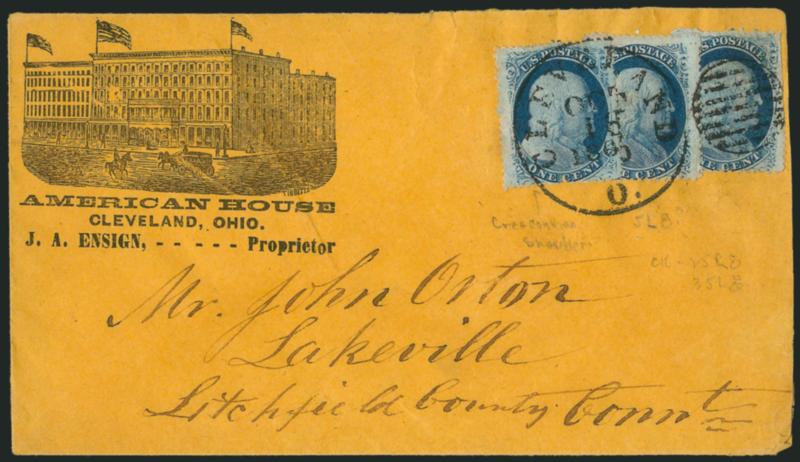 AMERICAN HOUSE
CLEVELAND, OHIO.
J. A. ENSIGN, - - - - - Proprietor
U.S. POSTAGE
ONE CENT
ONE CENT
U.S. POSTAGE
ONE CENT
CLEVELAND
O.
5LE
35LE
Mr. John Orton
Lakeville
Litchfield County Connt